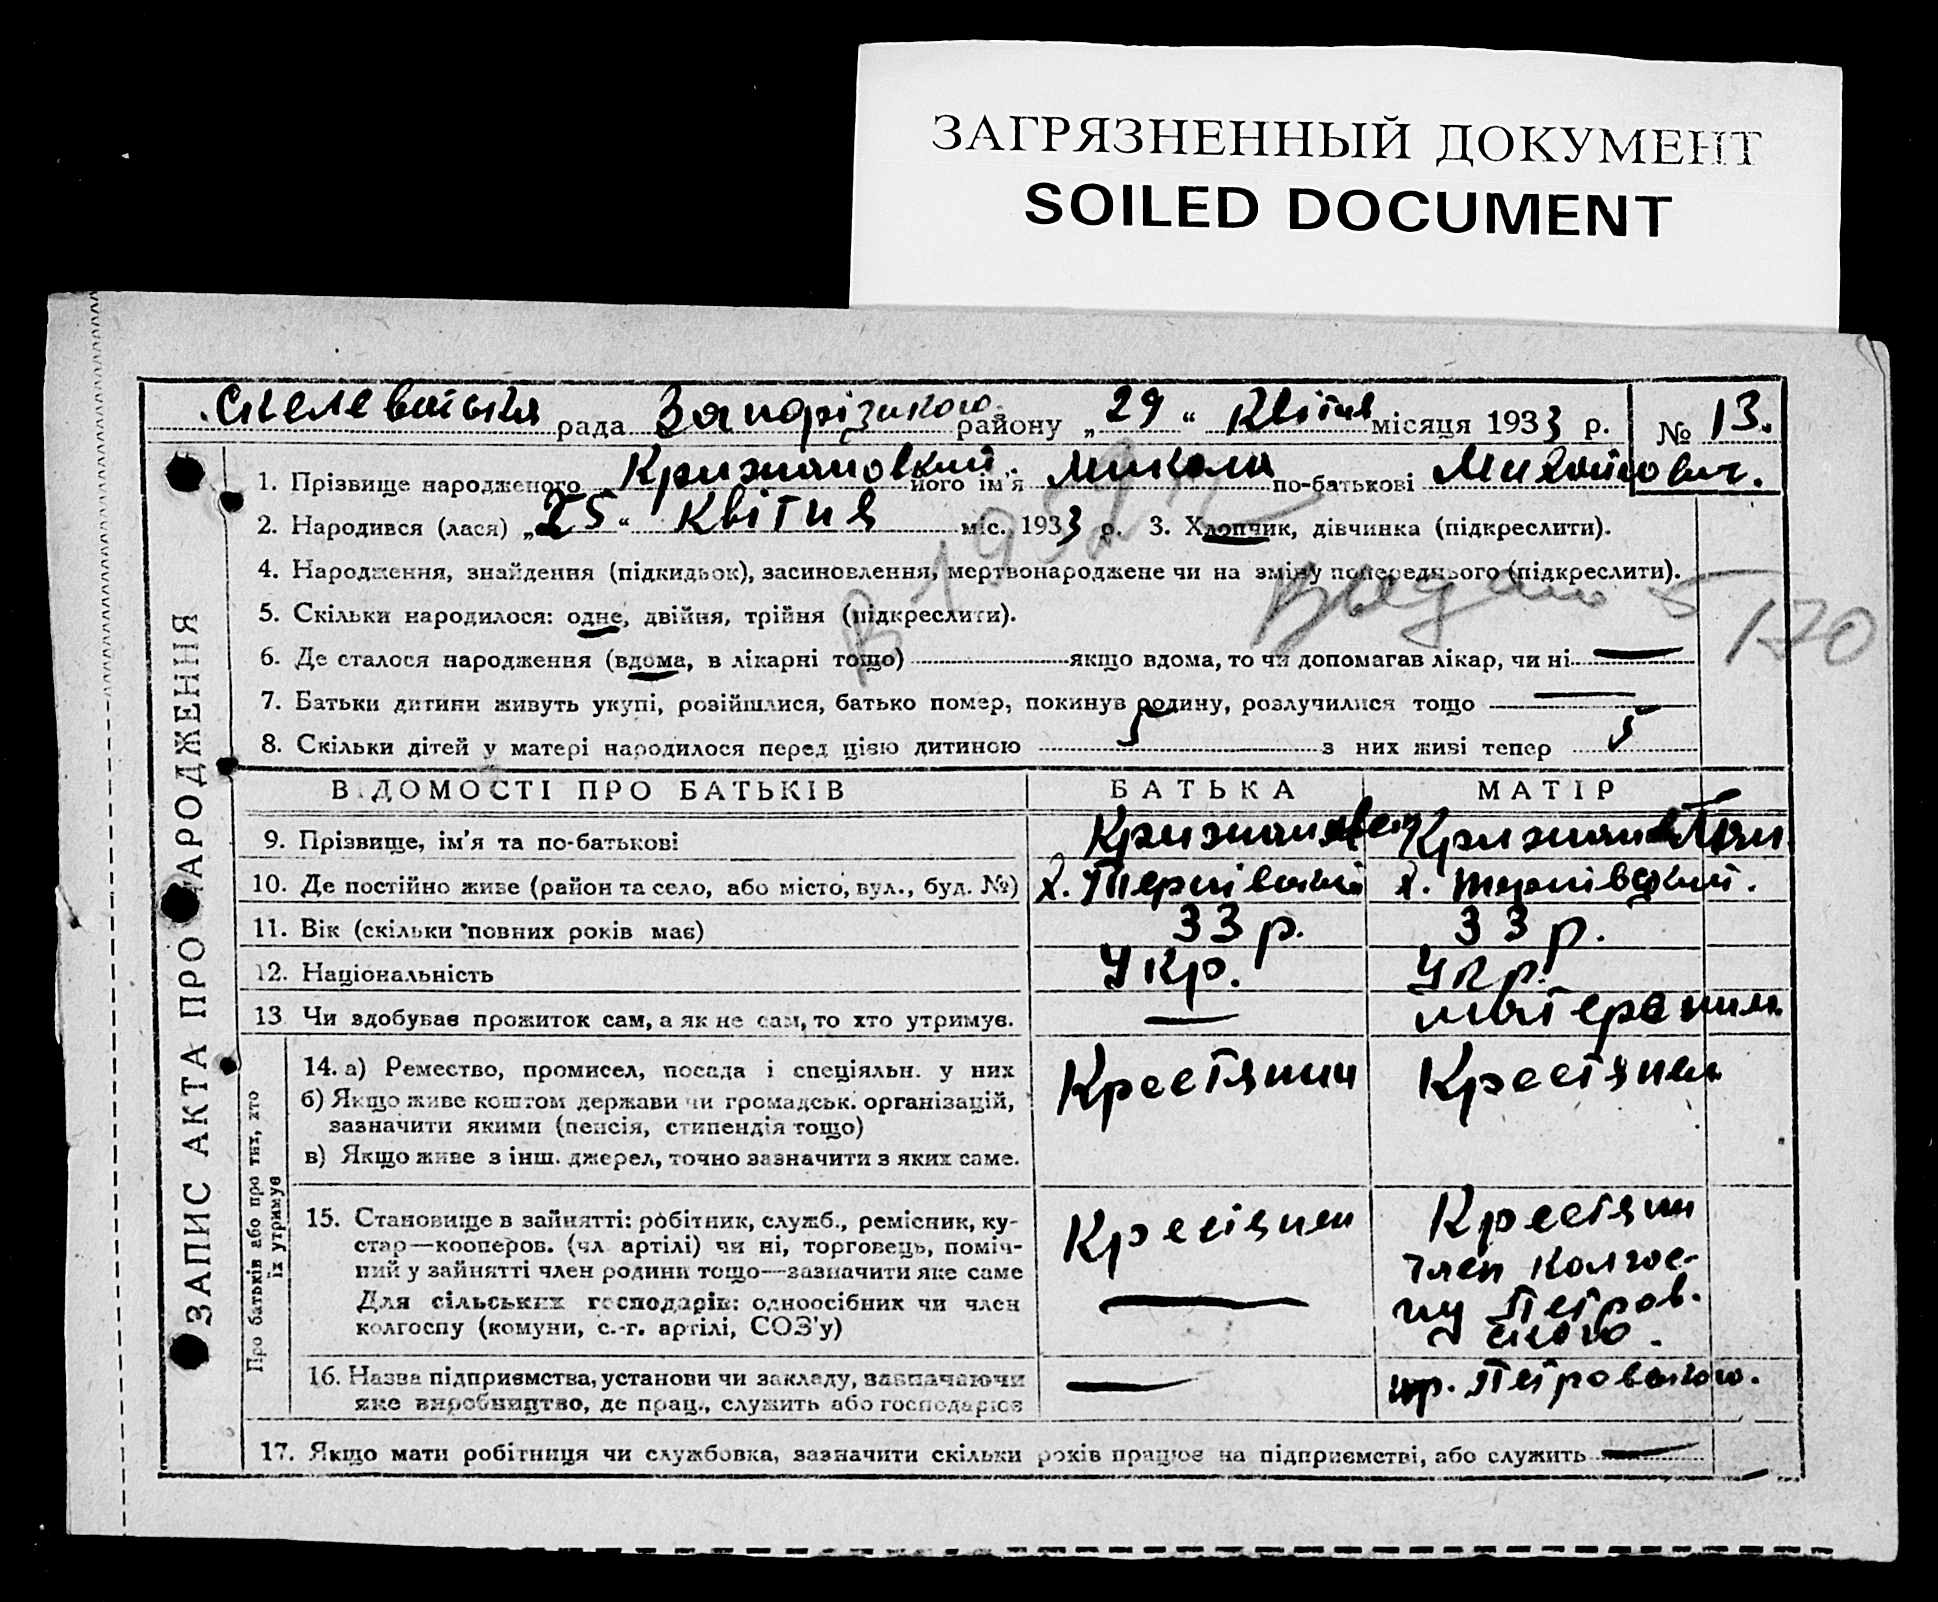 ЗАГРЯЗНЕННЫЙ ДОКУМЕНТ
SOILED DOCUMENT
рада Запорізького району „29“ Квітня місяця 1933 р. № 13.
1. Прізвище народженого Крижановский його ім'я Микола по-батькові Михайлович.
2. Народився (лася) „25“ Квітня міс. 1933 р. 3. Хлопчик, дівчинка (підкреслити).
4. Народження, знайдення (підкидьок), засиновлення, мертвонароджене чи на зміну попереднього (підкреслити).
5. Скільки народилося: одне, двійня, трійня (підкреслити).
170
6. Де сталося народження (вдома, в лікарні тощо) якщо вдома, то чи допомагав лікар, чи ні —
7. Батьки дитини живуть укупі, розійшлися, батько помер, покинув родину, розлучилися тощо —
8. Скільки дітей у матері народилося перед цією дитиною 5 з них живі тепер 5
ЗАПИС АКТА ПРО НАРОДЖЕННЯ
ВІДОМОСТІ ПРО БАТЬКІВ БАТЬКА МАТІР
9. Прізвище, ім'я та по-батькові
10. Де постійно живе (район та село, або місто, вул., буд. №) х. Терпівський х.
11. Вік (скільки повних років має) 33 р. 33 р.
12. Національність Укр. Укр.
13 Чи здобуває прожиток сам, а як не сам, то хто утримує. —
Про батьків або про тих, хто
їх утримує
14. а) Ремество, промисел, посада і спеціяльн. у них Крестянин
б) Якщо живе коштом держави чи громадськ. організацій,
зазначити якими (пенсія, стипендія тощо)
в) Якщо живе з інш. джерел, точно зазначити з яких саме.
15. Становище в зайнятті: робітник, служб., ремісник, ку-
стар—кооперов. (чл артілі) чи ні, торговець, поміч-
ний у зайнятті член родини тощо—зазначити яке саме
Для сільських господарів: одноосібник чи член
колгоспу (комуни, с.-г. артілі, СОЗ'у)
Крестян
член колгос-
пу Петров.
ського.
16. Назва підприємства, установи чи закладу, зазначаючи
яке виробництво, де прац., служить або господарює — Петровського.
17. Якщо мати робітниця чи службовка, зазначити скільки років працює на підприємстві, або служить —